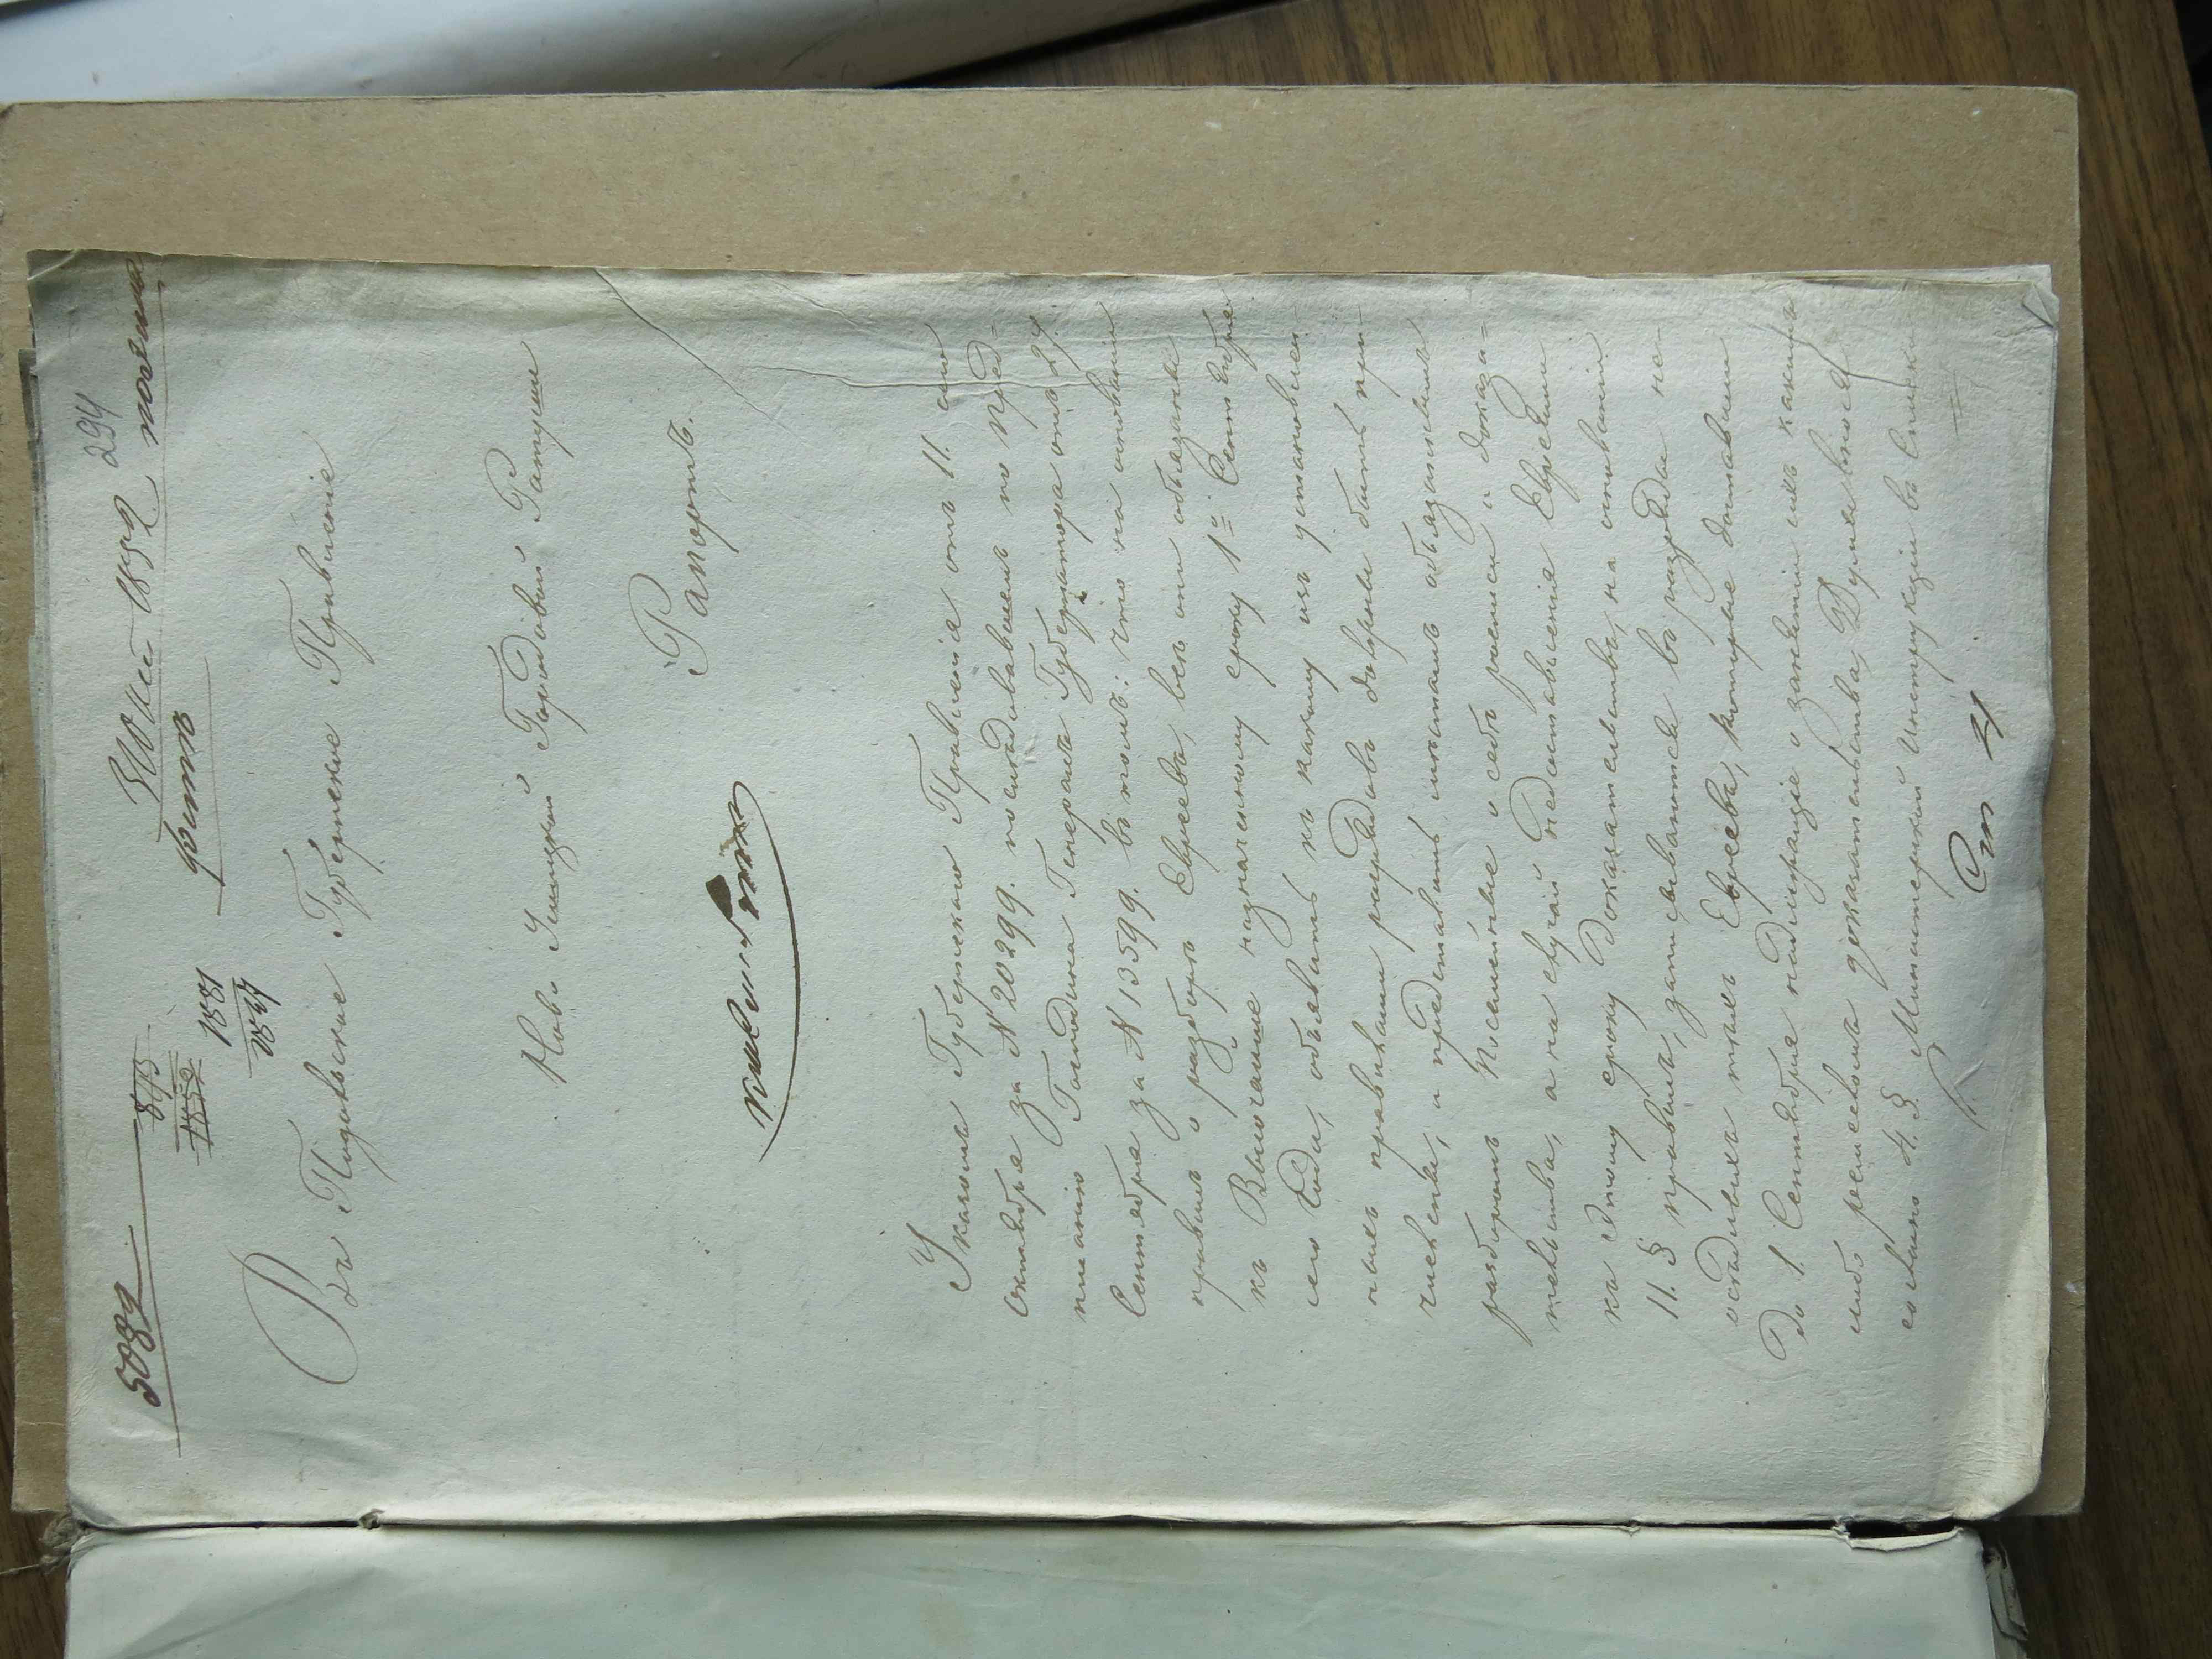 294
5082
1852
843
1852
1881
1847
Въ Подольское Губернское Правленіе
Ново Ушицкой Городовой Ратуши
Рапортъ.
Указомъ Губернскаго Правленія отъ 11. сего
Октября за № 20299. послѣдовавшемъ по пред=
писанію Господина Генералъ Губернатора отъ 24
Сентября за № 13599. въ томъ: что на основаніи
правилъ о разборѣ Евреевъ, всѣ они обязаны
къ Высочайше назначенному сроку 1го Сентября
сего Года, объявить къ какому изъ установлен-
ныхъ правилами разрядовъ должны быть при-
числены, и представить мѣстамъ обязаннымъ
разборомъ Посемейные о себѣ росписи и доказа=
тельства, а на случай недоставленія Евреями
къ этому сроку доказательствъ, на основаніи
11. § правилъ, записываются въ разряды не-
осѣдлыхъ тѣхъ Евреевъ, которые доставили
до 1. Сентября надлежащіе о занятіи ихъ какимъ
либо ремесломъ доказательства, Думы внося
согласно 4. § Министерской Инструкціи въ Списки